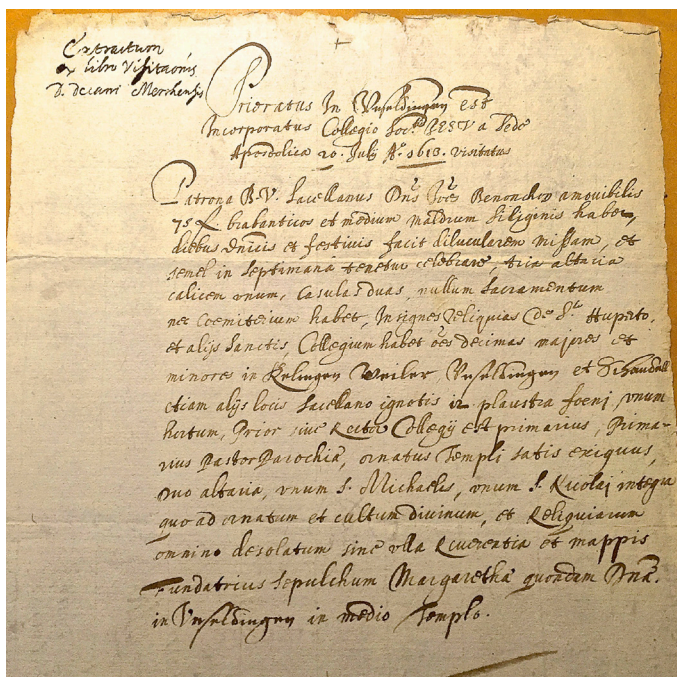 Extractum
ex libro Visitaõnis
D. Decani Merchensis
Prioratus In Useldingen est
Incorporatus Collegio Soc.tis IESV a Sede
Apostolica 20. Julij A.o 1613. visitatus
Patrona B.V. Sacellanus Dñs Joẽs Benonchop amovibilis
75 brabanticos et medium maldrum siliginis habet,
diebus dñicis et festivis facit dilucularem missam, et
semel in septimana tenetur celebrare, tria altaria
calicem vnum, Casulas duas, nullum Sacramentum
nec Coemiterium habet, Insignes reliquias de S.to Huperto
et alijs Sanctis, Collegium habet oẽs decimas majores et
minores in Relingen Weiler, Vseldingen et Schandell
etiam alijs locis Sacellano ignotis in plaustra foeni, vnum
hortum, Prior sive Rector Collegij est primarius, Prima-
rius Pastor Parochiæ, ornatus Templi satis exiguus,
duo altaria, vnum S. Michaelis, vnum S. Nicolai integra
quo ad ornatum et cultum divinum, et Reliquiarum
omnino desolatum sine vlla Reverentia et mappis
Fundatricis sepulchrum Margaretha quondam Dñæ.
in Vseldingen in medio Templo.